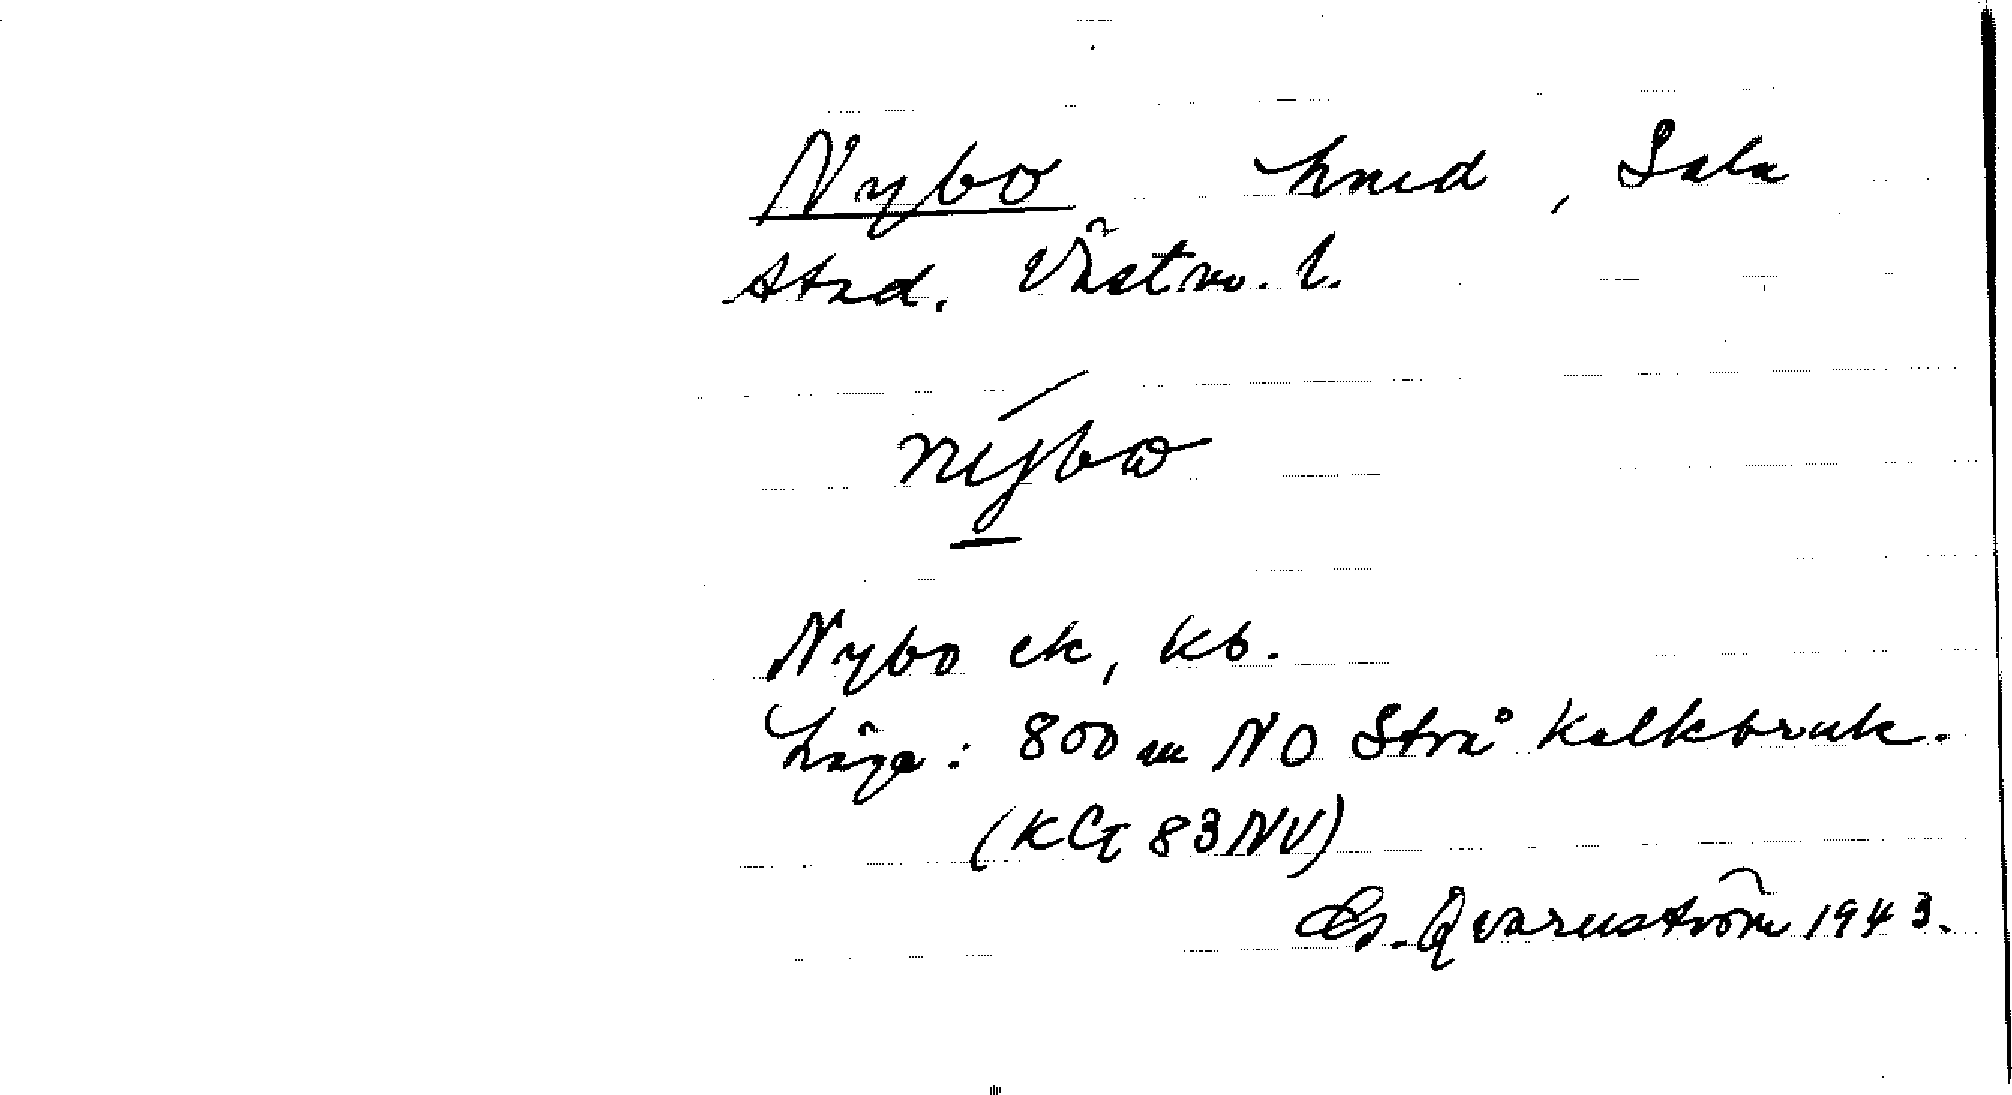 Nybo hmd, Sala
stad. Västm. l.
nýbω
Nybo ek, kb.
Läge: 800 m NO Strå kalkbruk.
(KG 83 NV)
G. Qvarnström 1943.